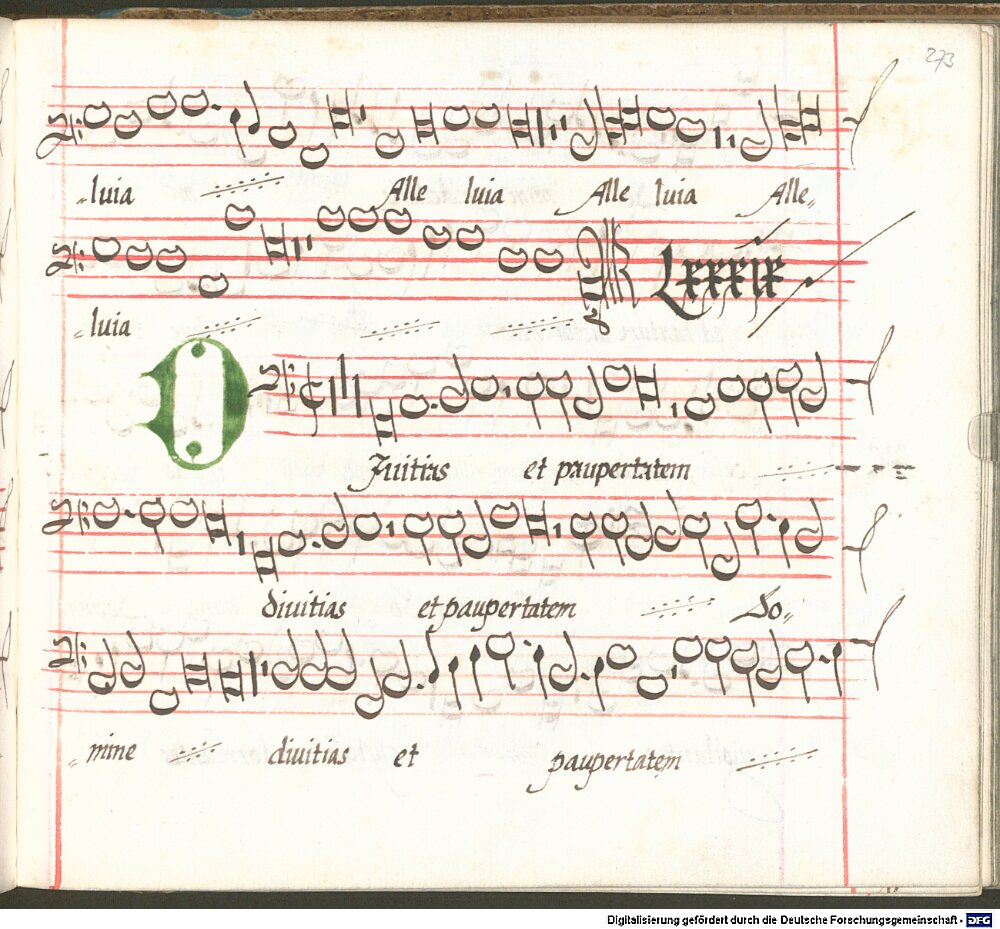 273
„luia Alle luia Alle luia Alle„
„luia
LXXXIX
D
Iuitias et paupertatem
diuitias et paupertatem Do„
„mine diuitias et paupertatem
Digitalisierung gefördert durch die Deutsche Forschungsgemeinschaft - DFG